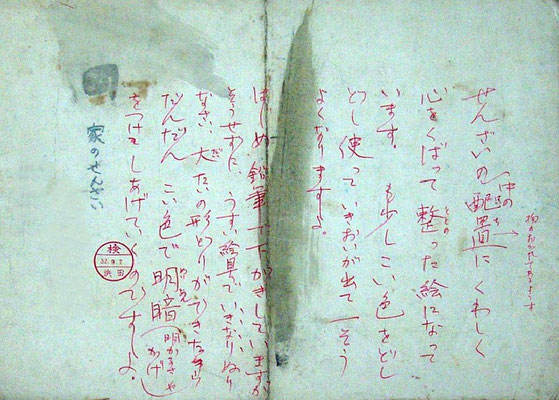 せんざいの配置にくわしく
心をくばって整った絵になって
います。 も少しこい色をどし
どし使っていきおいが出て一そう
よくなりますよ。
はじめ鉛筆で下がきしていますが
そうせずに うすい絵具でいきなりぬり
なさい。大たいの形どりができたら
だんだん こい色で明暗(明かるさやかげ)
をつけてしあげていくのですよ。
家のせんざい
検
浜田